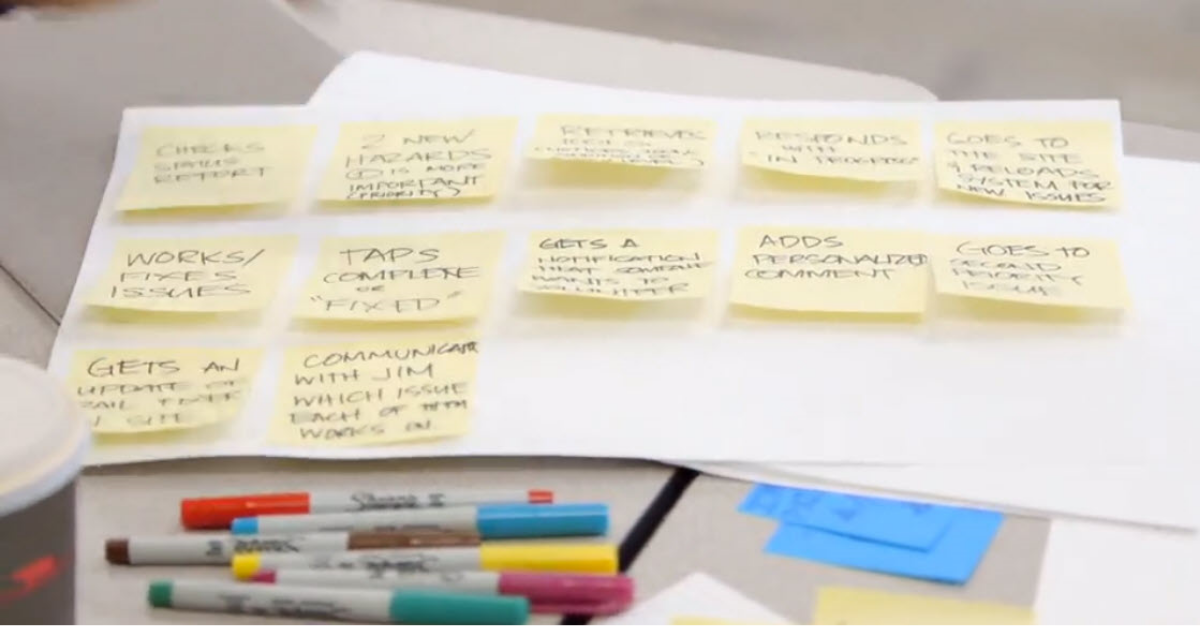 CHECKS
STATUS
REPORT
2 NEW
HAZARDS
① IS MORE
IMPORTANT
(PRIORITY)
RETRIEVES
RESPONDS
WITH
"IN PROGRESS"
GOES TO
THE SITE
& RELOADS
SYSTEM FOR
NEW ISSUES
WORKS/
FIXES
ISSUES
TAPS
COMPLETE
OR
"FIXED"
GETS A
NOTIFICATION
THAT SOMEONE
WANTS TO
VOLUNTEER
ADDS
PERSONALIZED
COMMENT
GOES TO
SECOND
PRIORITY
ISSUE
GETS AN
UPDATE OF
SITE
COMMUNICATE
WITH JIM
WHICH ISSUE
EACH OF THEM
WORKS ON.
Sharpie